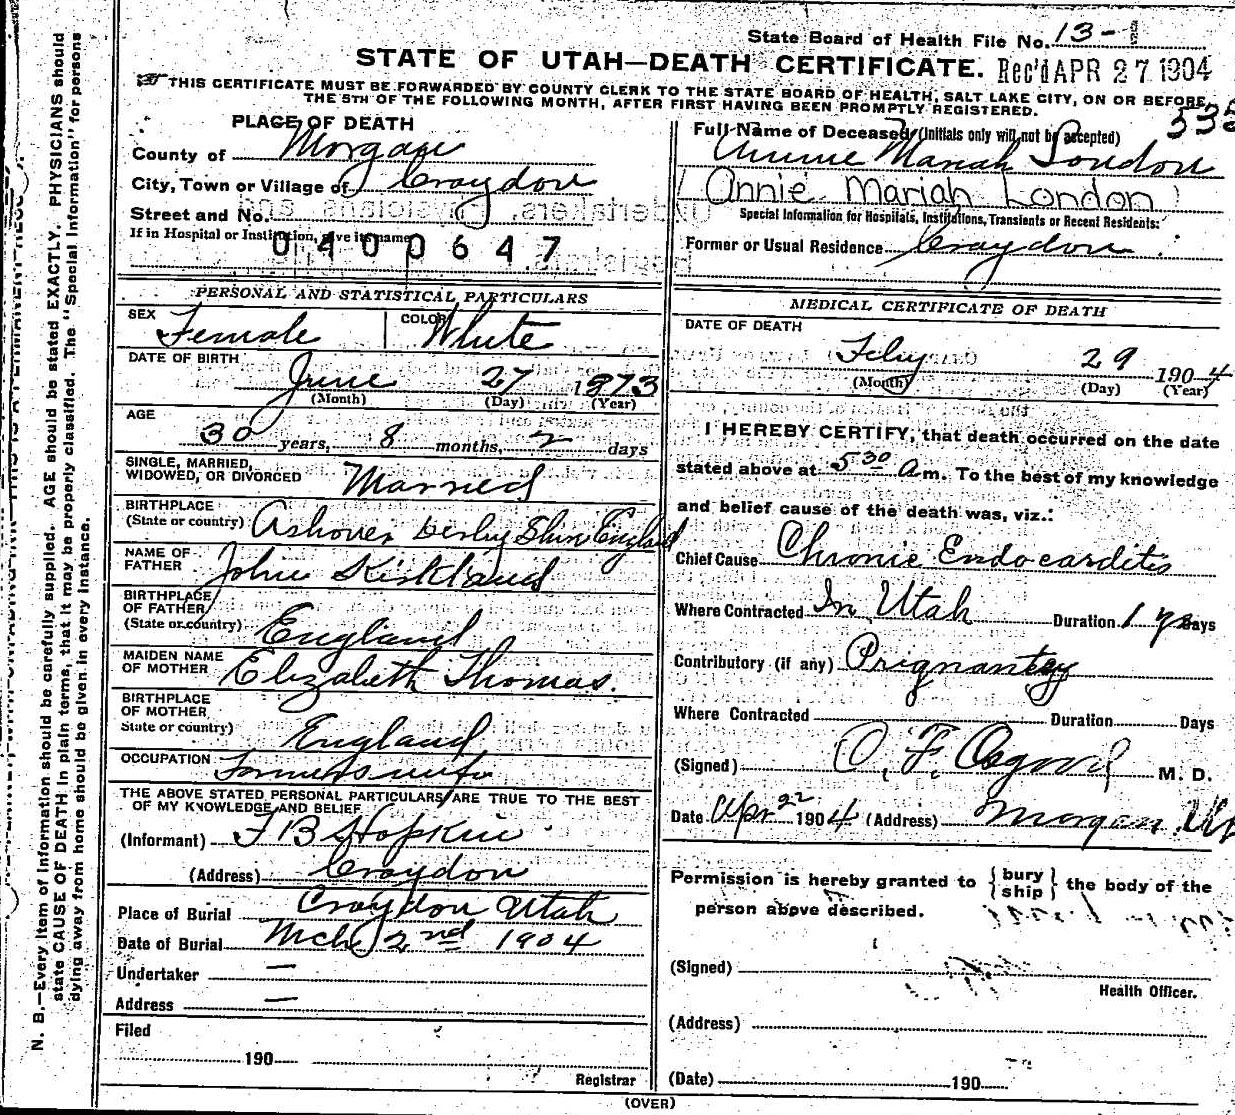 State Board of Health File No. 13-1
STATE OF UTAH—DEATH CERTIFICATE. Rec'd APR 27 1904
THIS CERTIFICATE MUST BE FORWARDED BY COUNTY CLERK TO THE STATE BOARD OF HEALTH, SALT LAKE CITY, ON OR BEFORE
THE 5TH OF THE FOLLOWING MONTH, AFTER FIRST HAVING BEEN PROMPTLY REGISTERED.
535
PLACE OF DEATH
County of Morgan
City, Town or Village of Croydon
Street and No.
If in Hospital or Institution, give its name
0400647
Full Name of Deceased (Initials only will not be accepted)
Annie Mariah London
(Annie Mariah London)
Special Information for Hospitals, Institutions, Transients or Recent Residents:
Former or Usual Residence Croydon
PERSONAL AND STATISTICAL PARTICULARS
SEX Female COLOR White
DATE OF BIRTH
June 27 1873
(Month) (Day) (Year)
AGE
30 years, 8 months, 2 days
SINGLE, MARRIED,
WIDOWED, OR DIVORCED Married
BIRTHPLACE
(State or country) Ashover Derby Shire England
NAME OF
FATHER John Kirkland
BIRTHPLACE
OF FATHER
(State or country) England
MAIDEN NAME
OF MOTHER Elizabeth Thomas.
BIRTHPLACE
OF MOTHER
State or country) England
OCCUPATION Farmers wife
THE ABOVE STATED PERSONAL PARTICULARS ARE TRUE TO THE BEST
OF MY KNOWLEDGE AND BELIEF
(Informant) F B Hopkin
(Address) Croydon
Place of Burial Croydon Utah
Date of Burial Mch 2nd 1904
Undertaker —
Address —
Filed
190
Registrar
MEDICAL CERTIFICATE OF DEATH
DATE OF DEATH
Feby 29 1904
(Month) (Day) (Year)
I HEREBY CERTIFY, that death occurred on the date
stated above at 5 30 a m. To the best of my knowledge
and belief cause of the death was, viz.:
Chief Cause Chronic Endocarditis
Where Contracted In Utah Duration 1 yr Days
Contributory (if any) Prignantcy
Where Contracted Duration Days
(Signed) O. F. Osgood M. D.
Date Apr 22 1904 (Address) Morgan, Ut
Permission is hereby granted to {bury ship} the body of the
person above described.
(Signed)
Health Officer.
(Address)
(Date) 190
(OVER)
N. B.—Every item of information should be carefully supplied. AGE should be stated EXACTLY. PHYSICIANS should
state CAUSE OF DEATH in plain terms, that it may be properly classified. The "Special Information" for persons
dying away from home should be given in every instance.